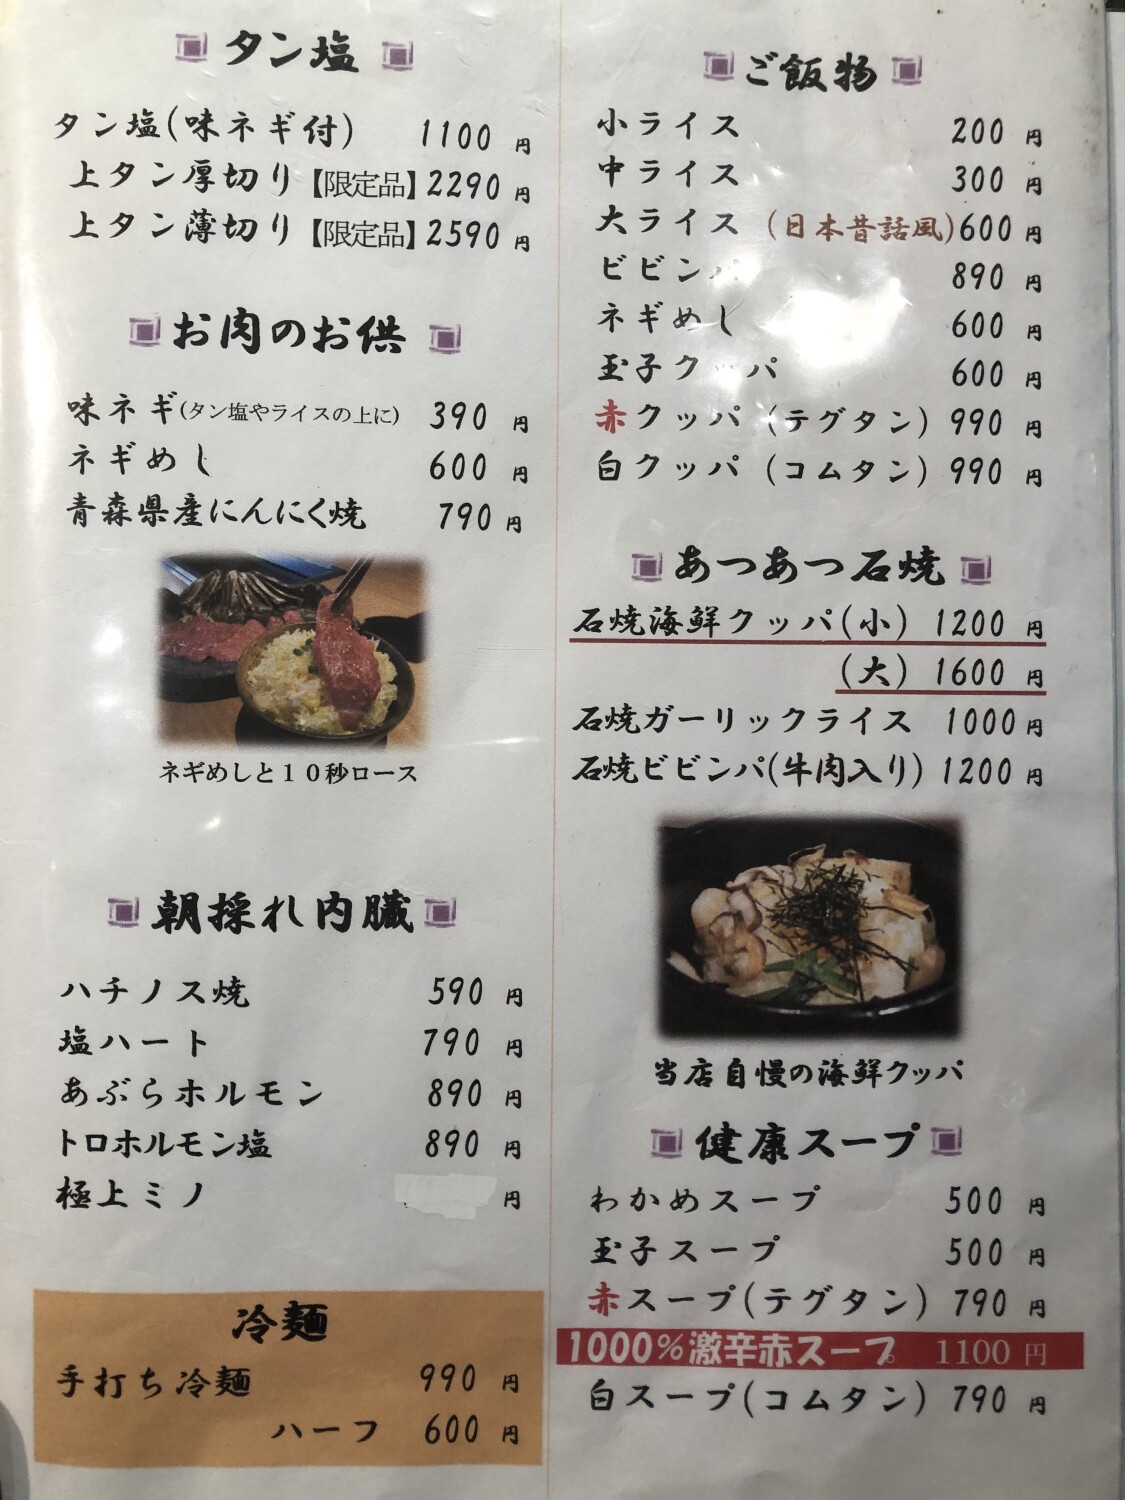 タン塩
タン塩(味ネギ付) 1100円
上タン厚切り【限定品】2290円
上タン薄切り【限定品】2590円
お肉のお供
味ネギ(タン塩やライスの上に) 390円
ネギめし 600円
青森県産にんにく焼 790円
ネギめしと10秒ロース
朝採れ内臓
ハチノス焼 590円
塩ハート 790円
あぶらホルモン 890円
トロホルモン塩 890円
極上ミノ 円
冷麺
手打ち冷麺 990円
ハーフ 600円
ご飯物
小ライス 200円
中ライス 300円
大ライス (日本昔話風)600円
ビビンパ 890円
ネギめし 600円
玉子クッパ 600円
赤クッパ (テグタン) 990円
白クッパ (コムタン) 990円
あつあつ石焼
石焼海鮮クッパ(小) 1200円
(大) 1600円
石焼ガーリックライス 1000円
石焼ビビンパ(牛肉入り) 1200円
当店自慢の海鮮クッパ
健康スープ
わかめスープ 500円
玉子スープ 500円
赤スープ(テグタン) 790円
1000%激辛赤スープ 1100円
白スープ(コムタン) 790円